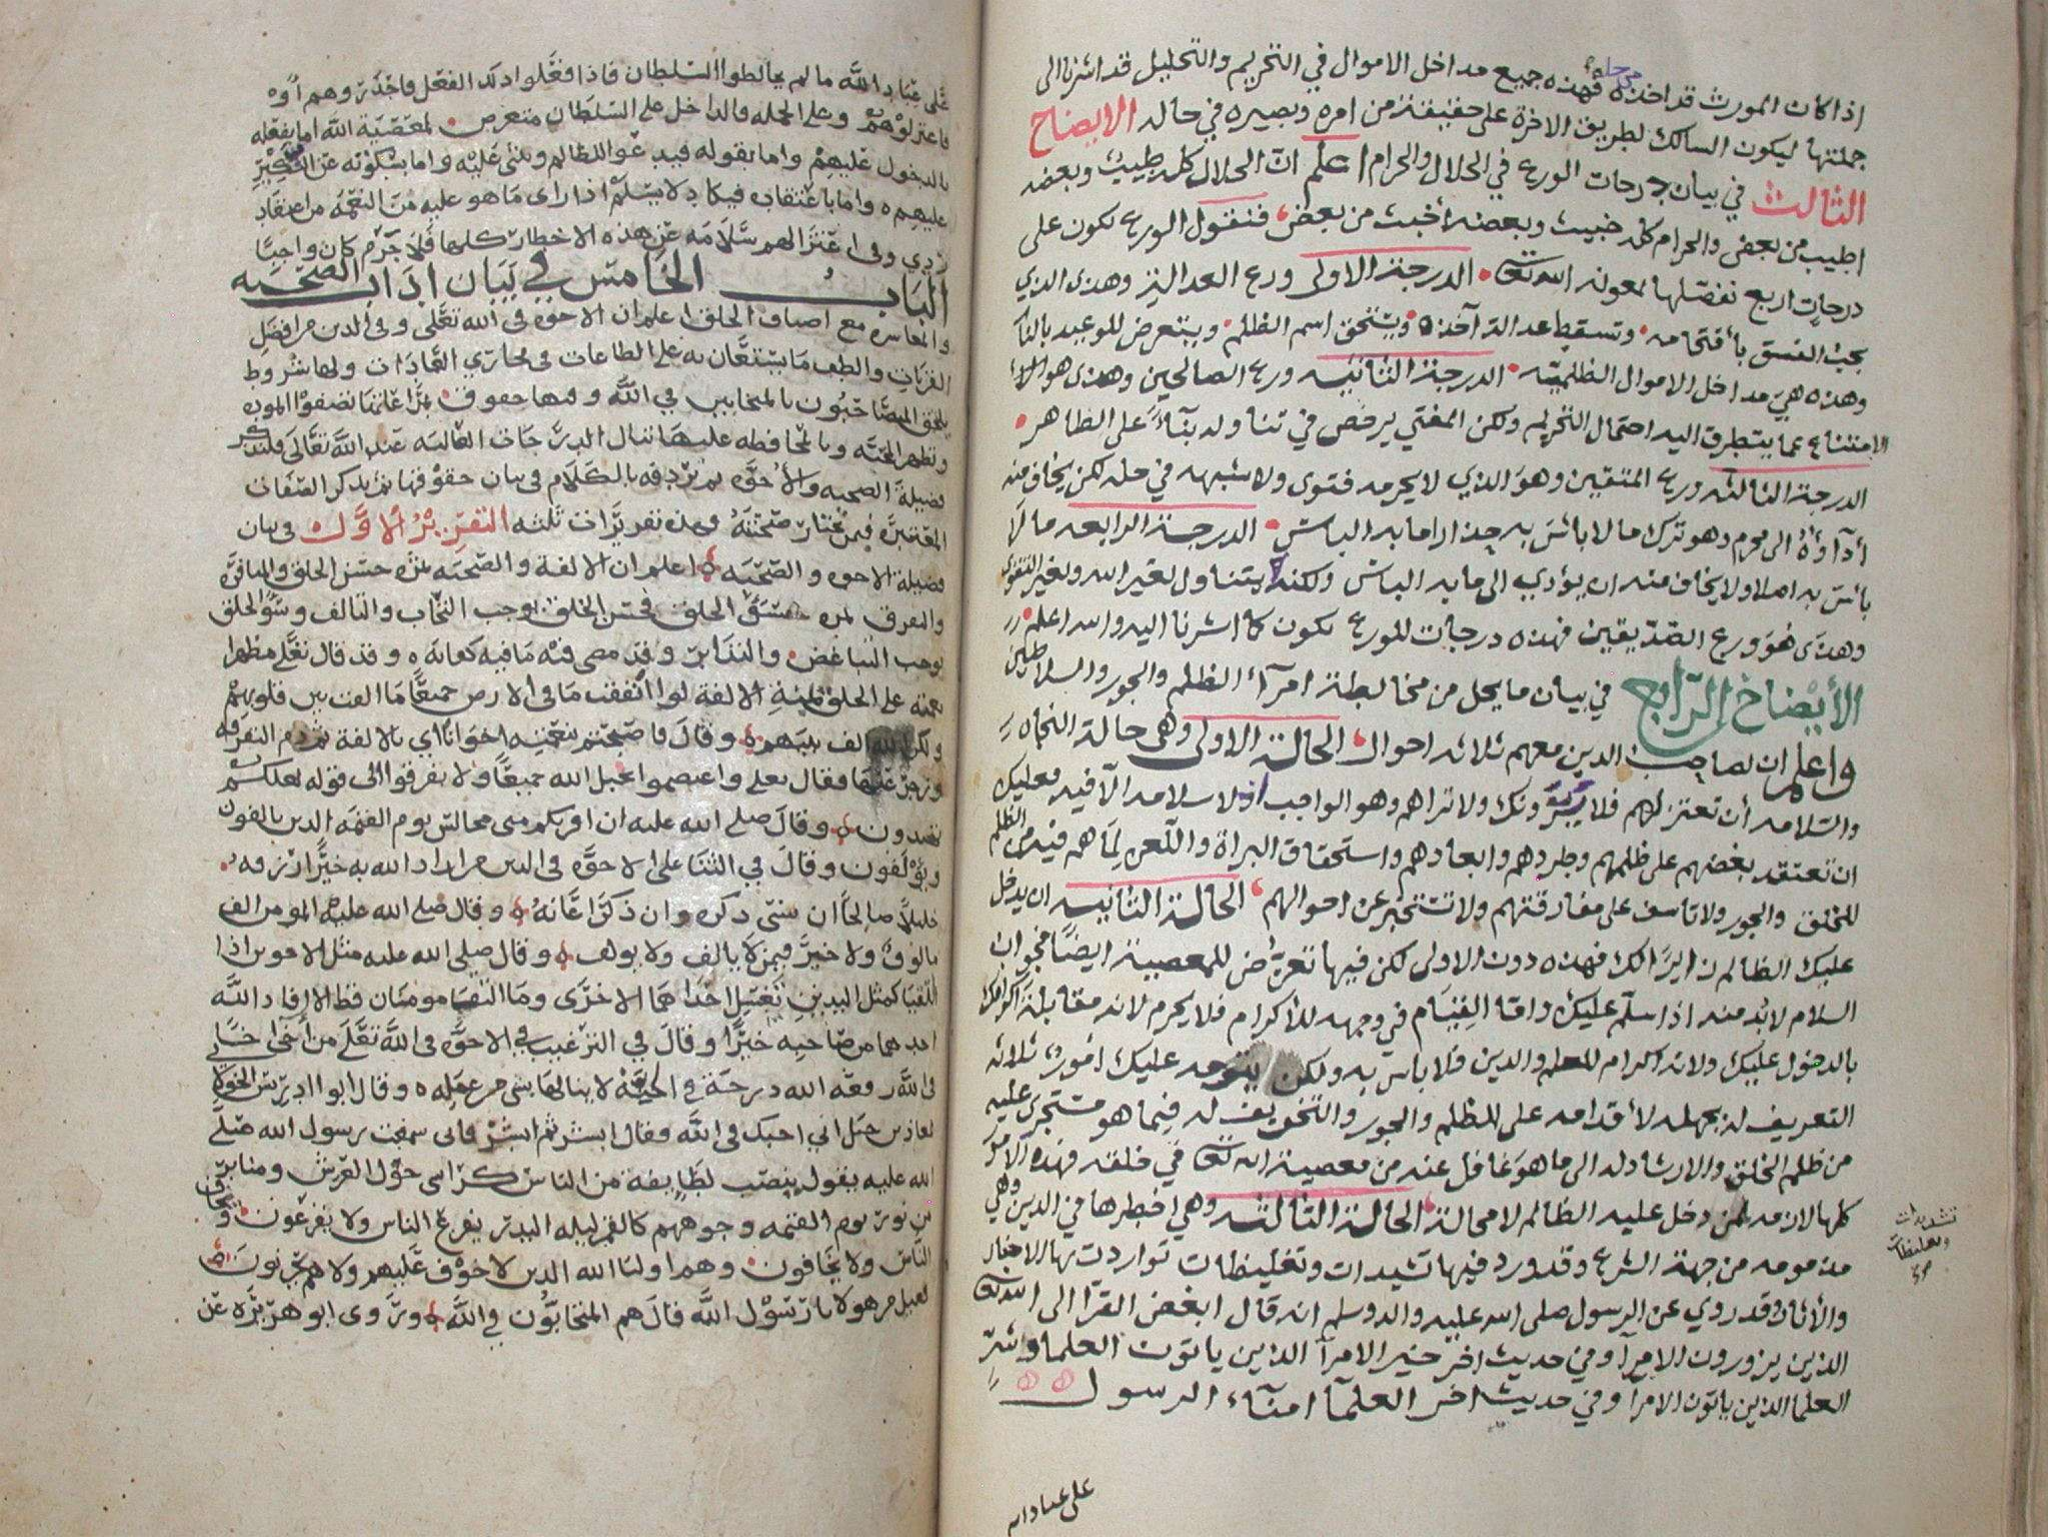 اذا كان المورث قد اخذه من حله فهذه جميع مداخل الاموال في التحريم والتحليل قد اشرنا الى
جملتها ليكون السالك لطريق الاخرة على حقيقة من امره وبصيره في حاله الايضاح
الثالث في بيان درجات الورع في الحلال والحرام اعلم ان الحلال كله طيب وبعضه
اطيب من بعض والحرام كله خبيث وبعضه أخبث من بعض فنقول الورع يكون على
درجات اربع نفصلها بمعونة الله تعالى الدرجة الاولى ورع العدالة وهذى الذي
يجب الفسق بأقتحامه وتسقط عدالة آخذه ويستحق اسم الظلم ويتعرض للوعيد بالنار
وهذه هي مداخل الاموال الظلمية الدرجة الثانية ورع الصالحين وهذى هو
الامتناع عما يتطرق اليه احتمال التحريم ولكن المفتي يرخص في تناوله بنآء على الظاهر
الدرجة الثالثه ورع المتقين وهو الذي لا يحرمه فتوى ولا شبهه في حله لكن يخاف منه
أدآؤه الى محرم وهو ترك مالا بائس به حذارا مما به البائس الدرجة الرابعه ما لا
بائس به اصلا ولا يخاف منه ان يؤدي الى ما به البائس ولكنه يتناول لغير الله وبغير التقوى
وهذى هو ورع الصديقين فهذه درجات للورع تكون كما اشرنا اليه والله اعلم
الأيضاح الرابع في بيان ما يحل من مخالطة امرآء الظلم والجور والسلاطين
واعلم ان لصاحب الدين معهم ثلاثه احوال الحالة الاولى وهي حالة النجاه
والسلامه أن تعتزلهم فلا يرونك ولا تراهم وهو الواجب اذ لا سلامه الا فيه فعليك
ان تعتقد بغضهم على ظلمهم وطردهم وابعادهم واستحقاق البراة واللعن لما هم فيه من الظلم
للخلق والجور ولا تاسف على مفارقتهم ولا تستخبر عن احوالهم الحالة الثانيه ان يدخل
عليك الظالم زايرا لك فهذه دون الاولى لكن فيها تعرض للمعصية ايضا فجواب
السلام لابد منه اذا سلم عليك واما القيام في وجهه للأكرام فلا يحرم لانه مقابلة اكرامك
بالدخول عليك ولانه اكرام للعلم والدين فلا باس به ولكن يتوجه عليك امور ثلاثه
التعريف له بجهله لأقدامه على الظلم والجور والتخويف له فيما هو مستجرى عليه
من ظلم الخلق والارشاد له الى ما هو غافل عنه من معصية الله تعالى في خلقه فهذه الامور
كلها لازمه لمن دخل عليه الظالم لا محالة الحالة الثالثه وهي اخطرها في الدين وهي
مذمومه من جهة الشرع وقد ورد فيها تشيدات وتغليظات تواردت بها الاخبار
والأثار وقد روي عن الرسول صلى الله عليه واله وسلم انه قال ابغض القرا الى الله تعالى
الذين يزورون الامرآ وفي حديث اخر خير الامرآ الذين ياتون العلما وشر
العلما الذين ياتون الامرآ وفي حديث اخر العلمآ امنآء الرسول
تشديدات
وتغليظات
على عباد الله
على عباد الله ما لم يخالطوا السلطان فاذا فعلوا ذلك الفعل فاحذروهم
فاعتزلوهم وعلى الجمله فالداخل على السلطان متعرض لمعصية الله اما بفعله
بالدخول عليهم واما بقوله فيدعو الظالم ويثنى عليه واما بسكوته عن النكير
عليهم واما باعتقاده فيكاد لا يسلم اذا راى ما هو عليه من النعمه من اعتقاد
ردي وفي اعتزالهم سلامه عن هذه الاخطار كلها فلا جرم كان واجبا
الباب الخامس في بيان اداب الصحبه
والمعاشره مع اصناف الخلق اعلم ان الاخوه في الله تعالى وفي الدين من افضل
القربات والطف ما يستعان به على الطاعات في مجاري العادات ولها شروط
يلحق المصاحبون بالمتحابين في الله وفيها حقوق بمراعاتها تصفوا الموده
وتظهر المحبه وبالمحافظه عليها تنال الدرجات العاليه عند الله تعالى فلنذكر
فضيلة الصحبه والأخوه ثم نردفه بالكلام في بيان حقوقها ثم نذكر الصفات
المعتبرة فيمن تختار صحبته وهذه تقريرات ثلثه التقرير الاول في بيان
فضيلة الاخوه والصحبه اعلم ان الالفة والصحبه ثمره حسن الخلق
والتفرق ثمره سوء الخلق فحسن الخلق يوجب التحاب والتالف وسوء الخلق
يوجب التباغض والتدابر وقد مضى فيه ما فيه كفايه وقد قال تعالى مظهرا
نعمته على الخلق بمنة الالفة لو انفقت ما في الارض جميعا ما الفت بين قلوبهم
ولكن الله الف بينهم وقال فاصبحتم بنعمته اخوانا اي بالالفة ثم ذم التفرقه
وزجر عنها فقال تعلى واعتصموا بحبل الله جميعا ولا تفرقوا الى قوله لعلكم
تهتدون وقال صلى الله عليه ان اقربكم منى مجالس يوم القيمه الذين يالفون
ويؤلفون وقال في الثنا على الاخوه في الدين من اراد الله به خيرا رزقه
خليلا صالحا ان نسى ذكره وان ذكر اعانه وقال صلى الله عليه المومن الف
مالوف ولا خير فيمن لا يالف ولا يولف وقال صلى الله عليه مثل الاخوين اذا
التقيا كمثل اليدين تغسل احداهما الاخرى وما التقيا مومنان قط الا افاد الله
احدهما من صاحبه خيرا وقال في الترغيب في الاخوه في الله تعلى من آخى اخا
في الله رفعه الله درجة في الجنة لا ينالها بشى من عمله وقال ابو ادريس الخولاني
لمعاذ بن جبل اني احبك في الله فقال ابشر ثم ابشر فانى سمعت رسول الله صلى
الله عليه يقول ينصب لطايفة من الناس كراسى حول العرش ومنابر
من نور يوم القيمه وجوههم كالقمر ليله البدر يفزع الناس ولا يفزعون ويخاف
الناس ولا يخافون وهم اوليا الله الذين لا خوف عليهم ولا هم يحزنون
فقيل من هولا يا رسول الله قال هم المتحابون في الله وروى ابو هريره عن